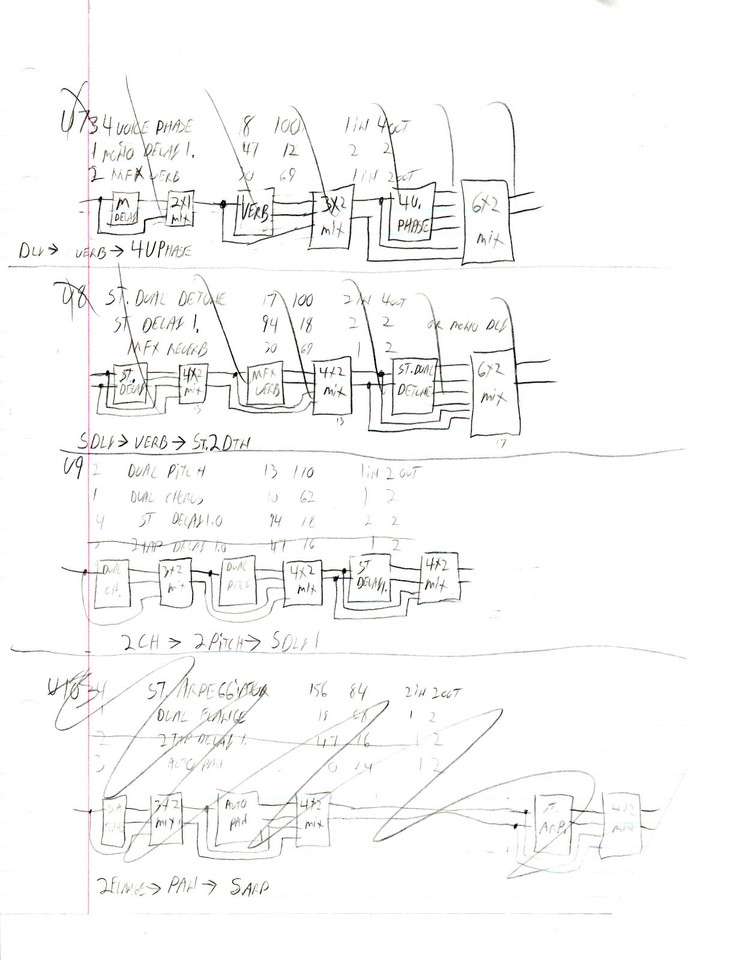 U7 3 4 VOICE PHASE 18 100 1 IN 4 OUT
1 MONO DELAY 1. 47 12 2 2
2 MFX VERB 30 69 1 IN 2 OUT
M DELAY 2X1 mix VERB 3X2 mix 4V. PHASE 6X2 mix
DLY → VERB → 4VPHASE
U8 ST. DUAL DETUNE 17 100 2 IN 4 OUT
ST DELAY 1. 94 18 2 2 OR MONO DLY
MFX REVERB 30 69 1 2
ST. DELAY 4X2 mix MFX VERB 4X2 mix ST. DUAL DETUNE 6X2 mix
13 13 17
SDLY → VERB → ST.2DTN
U9 2 DUAL PITCH 13 110 1 IN 2 OUT
1 DUAL CHORUS 10 62 1 2
4 ST DELAY 1.0 94 18 2 2
3 2TAP DELAY 1.0 47 16 1 2
DUAL CH. 3X2 mix DUAL 4X2 MIX ST DELAY 1. 4X2 mix
2CH → 2PITCH → SDLY 1
U10 4 ST. ARPEGGIATOR 156 84 2 IN 2 OUT
DUAL FLANGE 1 2
2 2TAP DELAY 1. 47 16 1 2
3 AUTO PAN 1 2
3X2 MIX AUTO PAN 4X2 mix ST. ARP. 4X2
2FLANGE → PAN → SARP